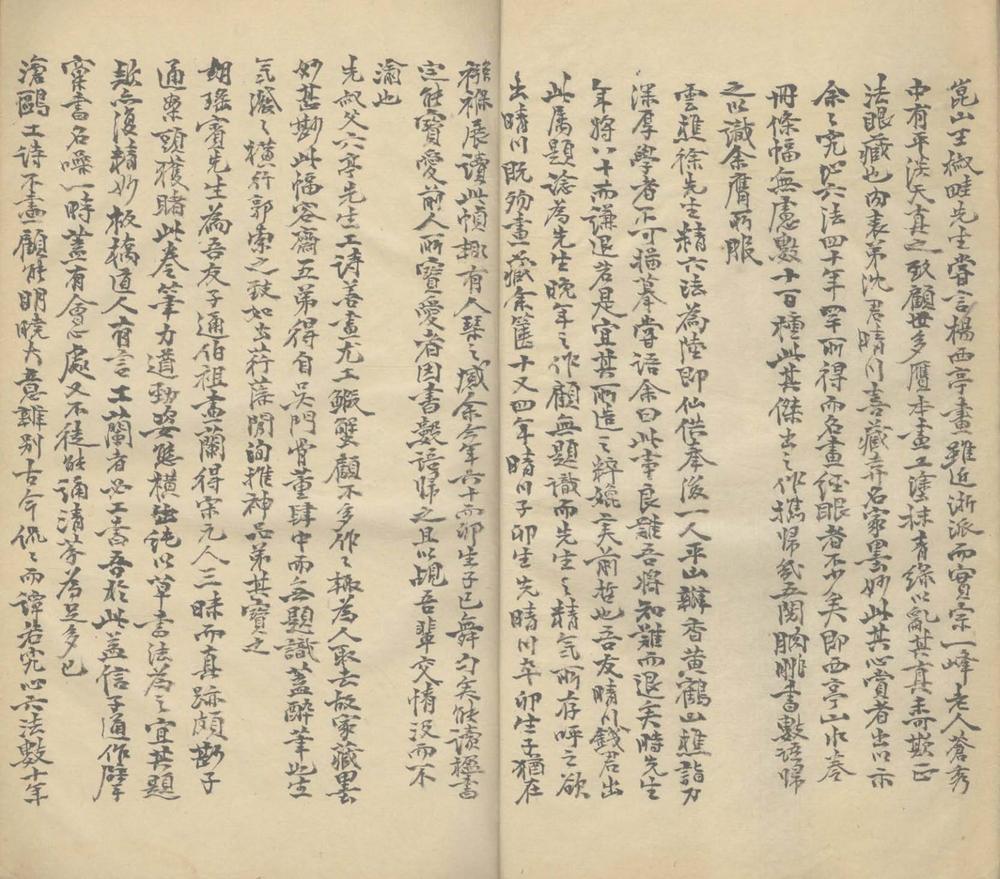 崑山王椒畦先生嘗言楊西亭畫雖近浙派而實宗一峰老人蒼秀
中有平淡天真之致顧世多贋本畫工塗抹青綠以亂其真未可欺正
法眼藏也內表弟沈君晴川喜藏弆名家墨妙此其心賞者出以示
余之究心六法四十年罕所得而名畫經眼者不少矣即西亭山水卷
冊條幅無慮數十百種此其傑出之作攜歸我五閱月臨摹書數語歸
之以識余膺所服
雲樵徐先生精六法為陸郎仙供奉後一人平山瓣香黃鶴山樵詣力
深厚學者不可描摹嘗語余曰此事良難吾將知難而退矣時先生
年將八十而謙退若是宜其所造之粹媲美前哲也吾友晴川錢君出
此屬題諗為先生晚年之作顧無題識而先生之精氣所存呼之欲
出晴川既歿畫藏余篋十又四年晴川子卯生先晴川卒卯生子猶在
襁褓展讀此幀輒有人琴之慽余今年六十而卯生子已舞勺矣能讀楹書
定能寶愛前人所寶愛者因書數語歸之且以覘吾輩交情沒而不
渝也
先叔父六亭先生工詩善畫尤工蝦蟹顧不多作之輒為人取去故家藏墨
妙甚尠此幅容齋五弟得自吳門骨董肆中而無題識蓋醉筆也生
氣潑之橫行郭索之致如出荇藻間洵推神品弟其寶之
胡瑤賓先生為吾友子通伯祖畫蘭得宋元人三昧而真跡頗尠子
通案頭獲睹此卷筆力遒勁姿態橫佚純以草書法為之宜其題
款亦復精妙板橋道人有言工蘭者必工書吾於此益信子通作擘
窠書名噪一時蓋有會心處又不徒能誦清芬為足多已
滄鷗工詩不畫顧能明曉大意辨別古今侃之而譚若究心六法數十年